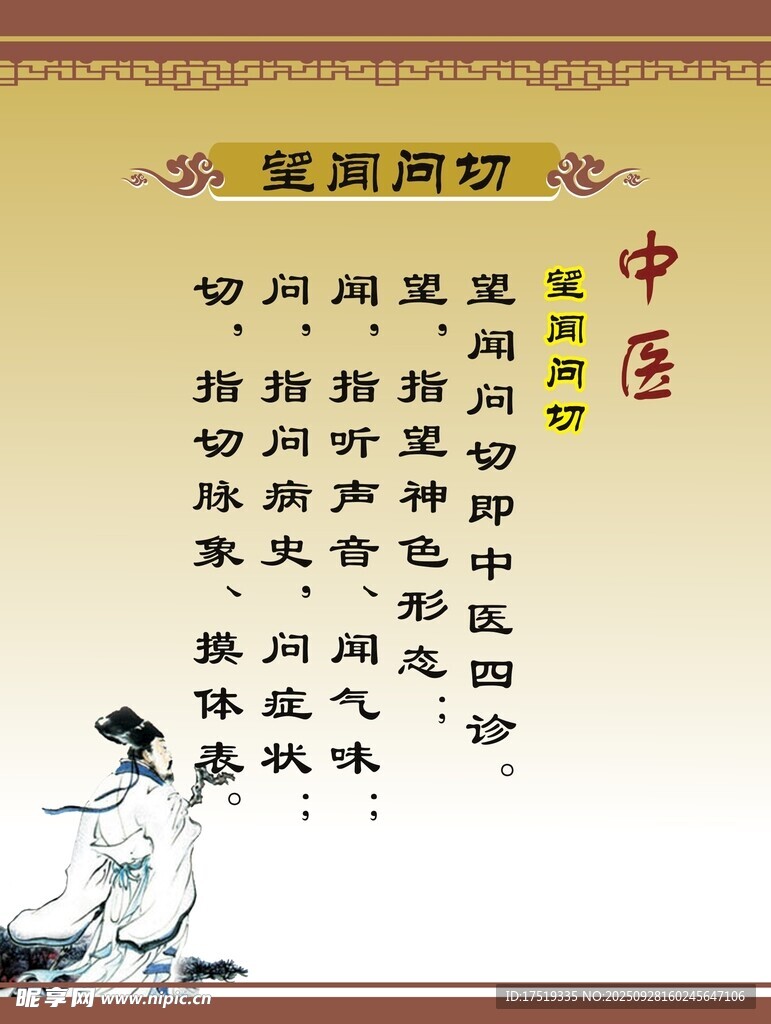 望闻问切
中医
望闻问切
望闻问切即中医四诊。
望，指望神色形态；
闻，指听声音、闻气味；
问，指问病史，问症状；
切，指切脉象、摸体表。
昵享网 www.nipic.cn
ID:17519335 NO:20250928160245647106